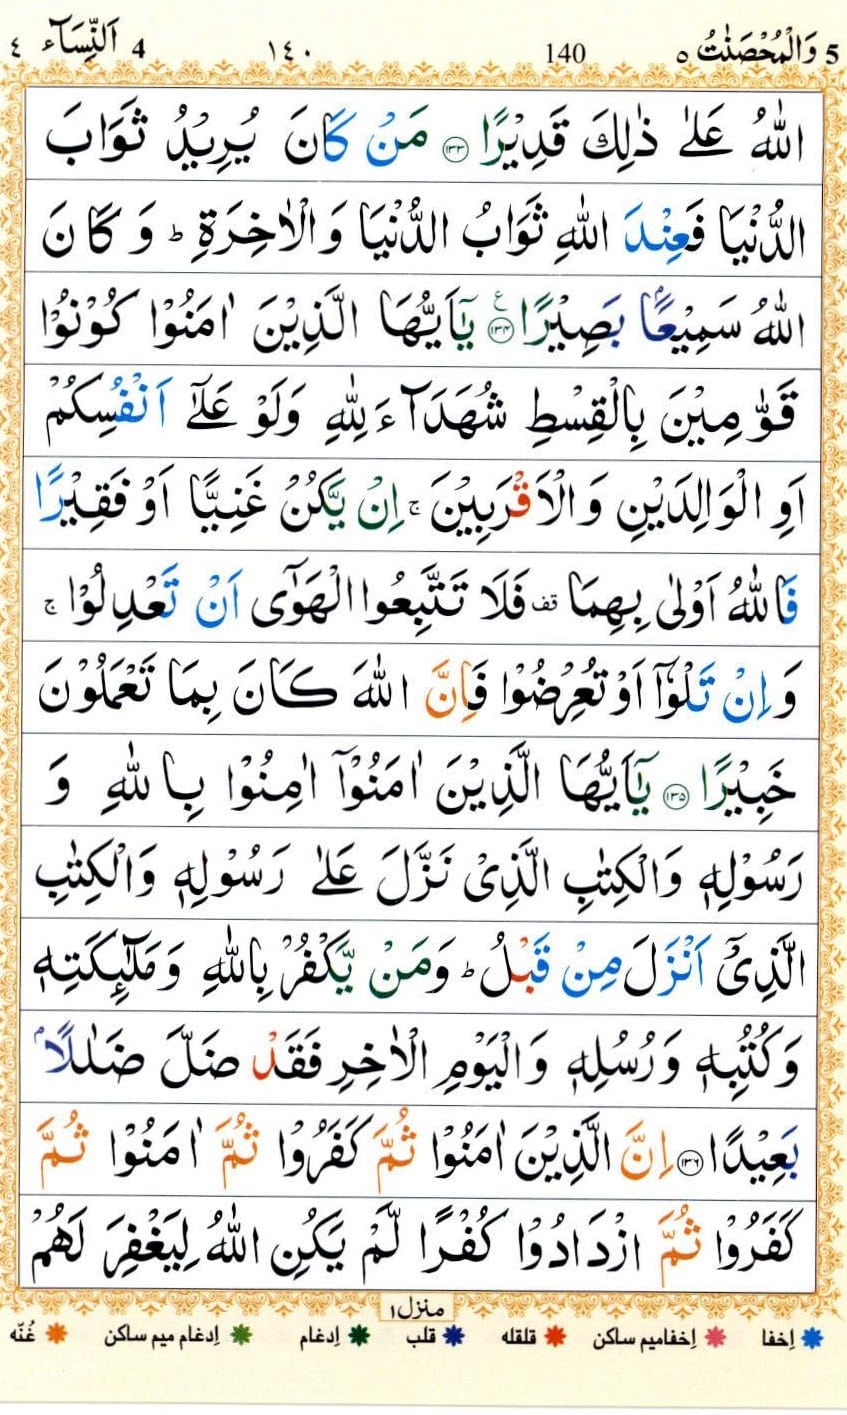 5 وَالْمُحْصَنٰتُ ٥ 140 ١٤٠ 4 اَلنِّسَآء ٤
اللّٰهُ عَلٰى ذٰلِكَ قَدِيْرًا ﴿۱۳۳﴾ مَنْ كَانَ يُرِيْدُ ثَوَابَ
الدُّنْيَا فَعِنْدَ اللّٰهِ ثَوَابُ الدُّنْيَا وَالْاٰخِرَةِ ؕ وَكَانَ
اللّٰهُ سَمِيْعًۢا بَصِيْرًا ﴿۱۳۴﴾ ع يٰۤاَيُّهَا الَّذِيْنَ اٰمَنُوْا كُوْنُوْا
قَوّٰمِيْنَ بِالْقِسْطِ شُهَدَآءَ لِلّٰهِ وَلَوْ عَلٰۤى اَنْفُسِكُمْ
اَوِ الْوَالِدَيْنِ وَالْاَقْرَبِيْنَ ۚ اِنْ يَّكُنْ غَنِيًّا اَوْ فَقِيْرًا
فَاللّٰهُ اَوْلٰى بِهِمَا قف فَلَا تَتَّبِعُوا الْهَوٰٓى اَنْ تَعْدِلُوْا ۚ
وَاِنْ تَلْوٗۤا اَوْ تُعْرِضُوْا فَاِنَّ اللّٰهَ كَانَ بِمَا تَعْمَلُوْنَ
خَبِيْرًا ﴿۱۳۵﴾ يٰۤاَيُّهَا الَّذِيْنَ اٰمَنُوْۤا اٰمِنُوْا بِاللّٰهِ وَ
رَسُوْلِهٖ وَالْكِتٰبِ الَّذِيْ نَزَّلَ عَلٰى رَسُوْلِهٖ وَالْكِتٰبِ
الَّذِيْۤ اَنْزَلَ مِنْ قَبْلُ ؕ وَمَنْ يَّكْفُرْ بِاللّٰهِ وَمَلٰٓئِكَتِهٖ
وَكُتُبِهٖ وَرُسُلِهٖ وَالْيَوْمِ الْاٰخِرِ فَقَدْ ضَلَّ ضَلٰلًاۢ
بَعِيْدًا ﴿۱۳۶﴾ اِنَّ الَّذِيْنَ اٰمَنُوْا ثُمَّ كَفَرُوْا ثُمَّ اٰمَنُوْا ثُمَّ
كَفَرُوْا ثُمَّ ازْدَادُوْا كُفْرًا لَّمْ يَكُنِ اللّٰهُ لِيَغْفِرَ لَهُمْ
منزل ١
اِخفا اِخفامیم ساکن قلقله قلب اِدغام اِدغام میم ساکن غُنّه